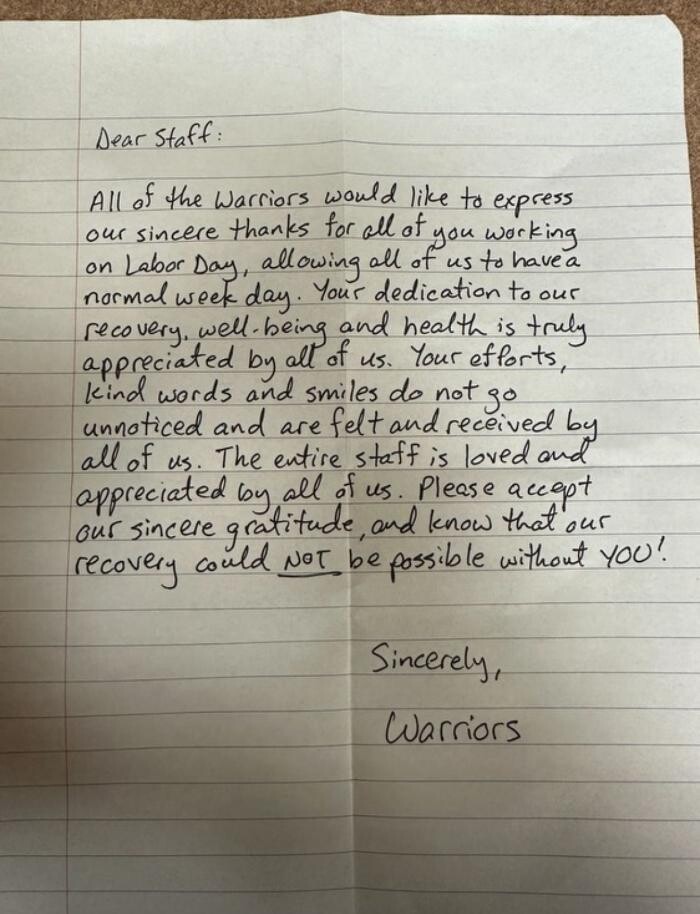 Dear Staff:
All of the Warriors would like to express
our sincere thanks for all of you working
on Labor Day, allowing all of us to have a
normal week day. Your dedication to our
recovery, well-being and health is truly
appreciated by all of us. Your efforts,
kind words and smiles do not go
unnoticed and are felt and received by
all of us. The entire staff is loved and
appreciated by all of us. Please accept
our sincere gratitude, and know that our
recovery could NOT be possible without YOU!
Sincerely,
Warriors